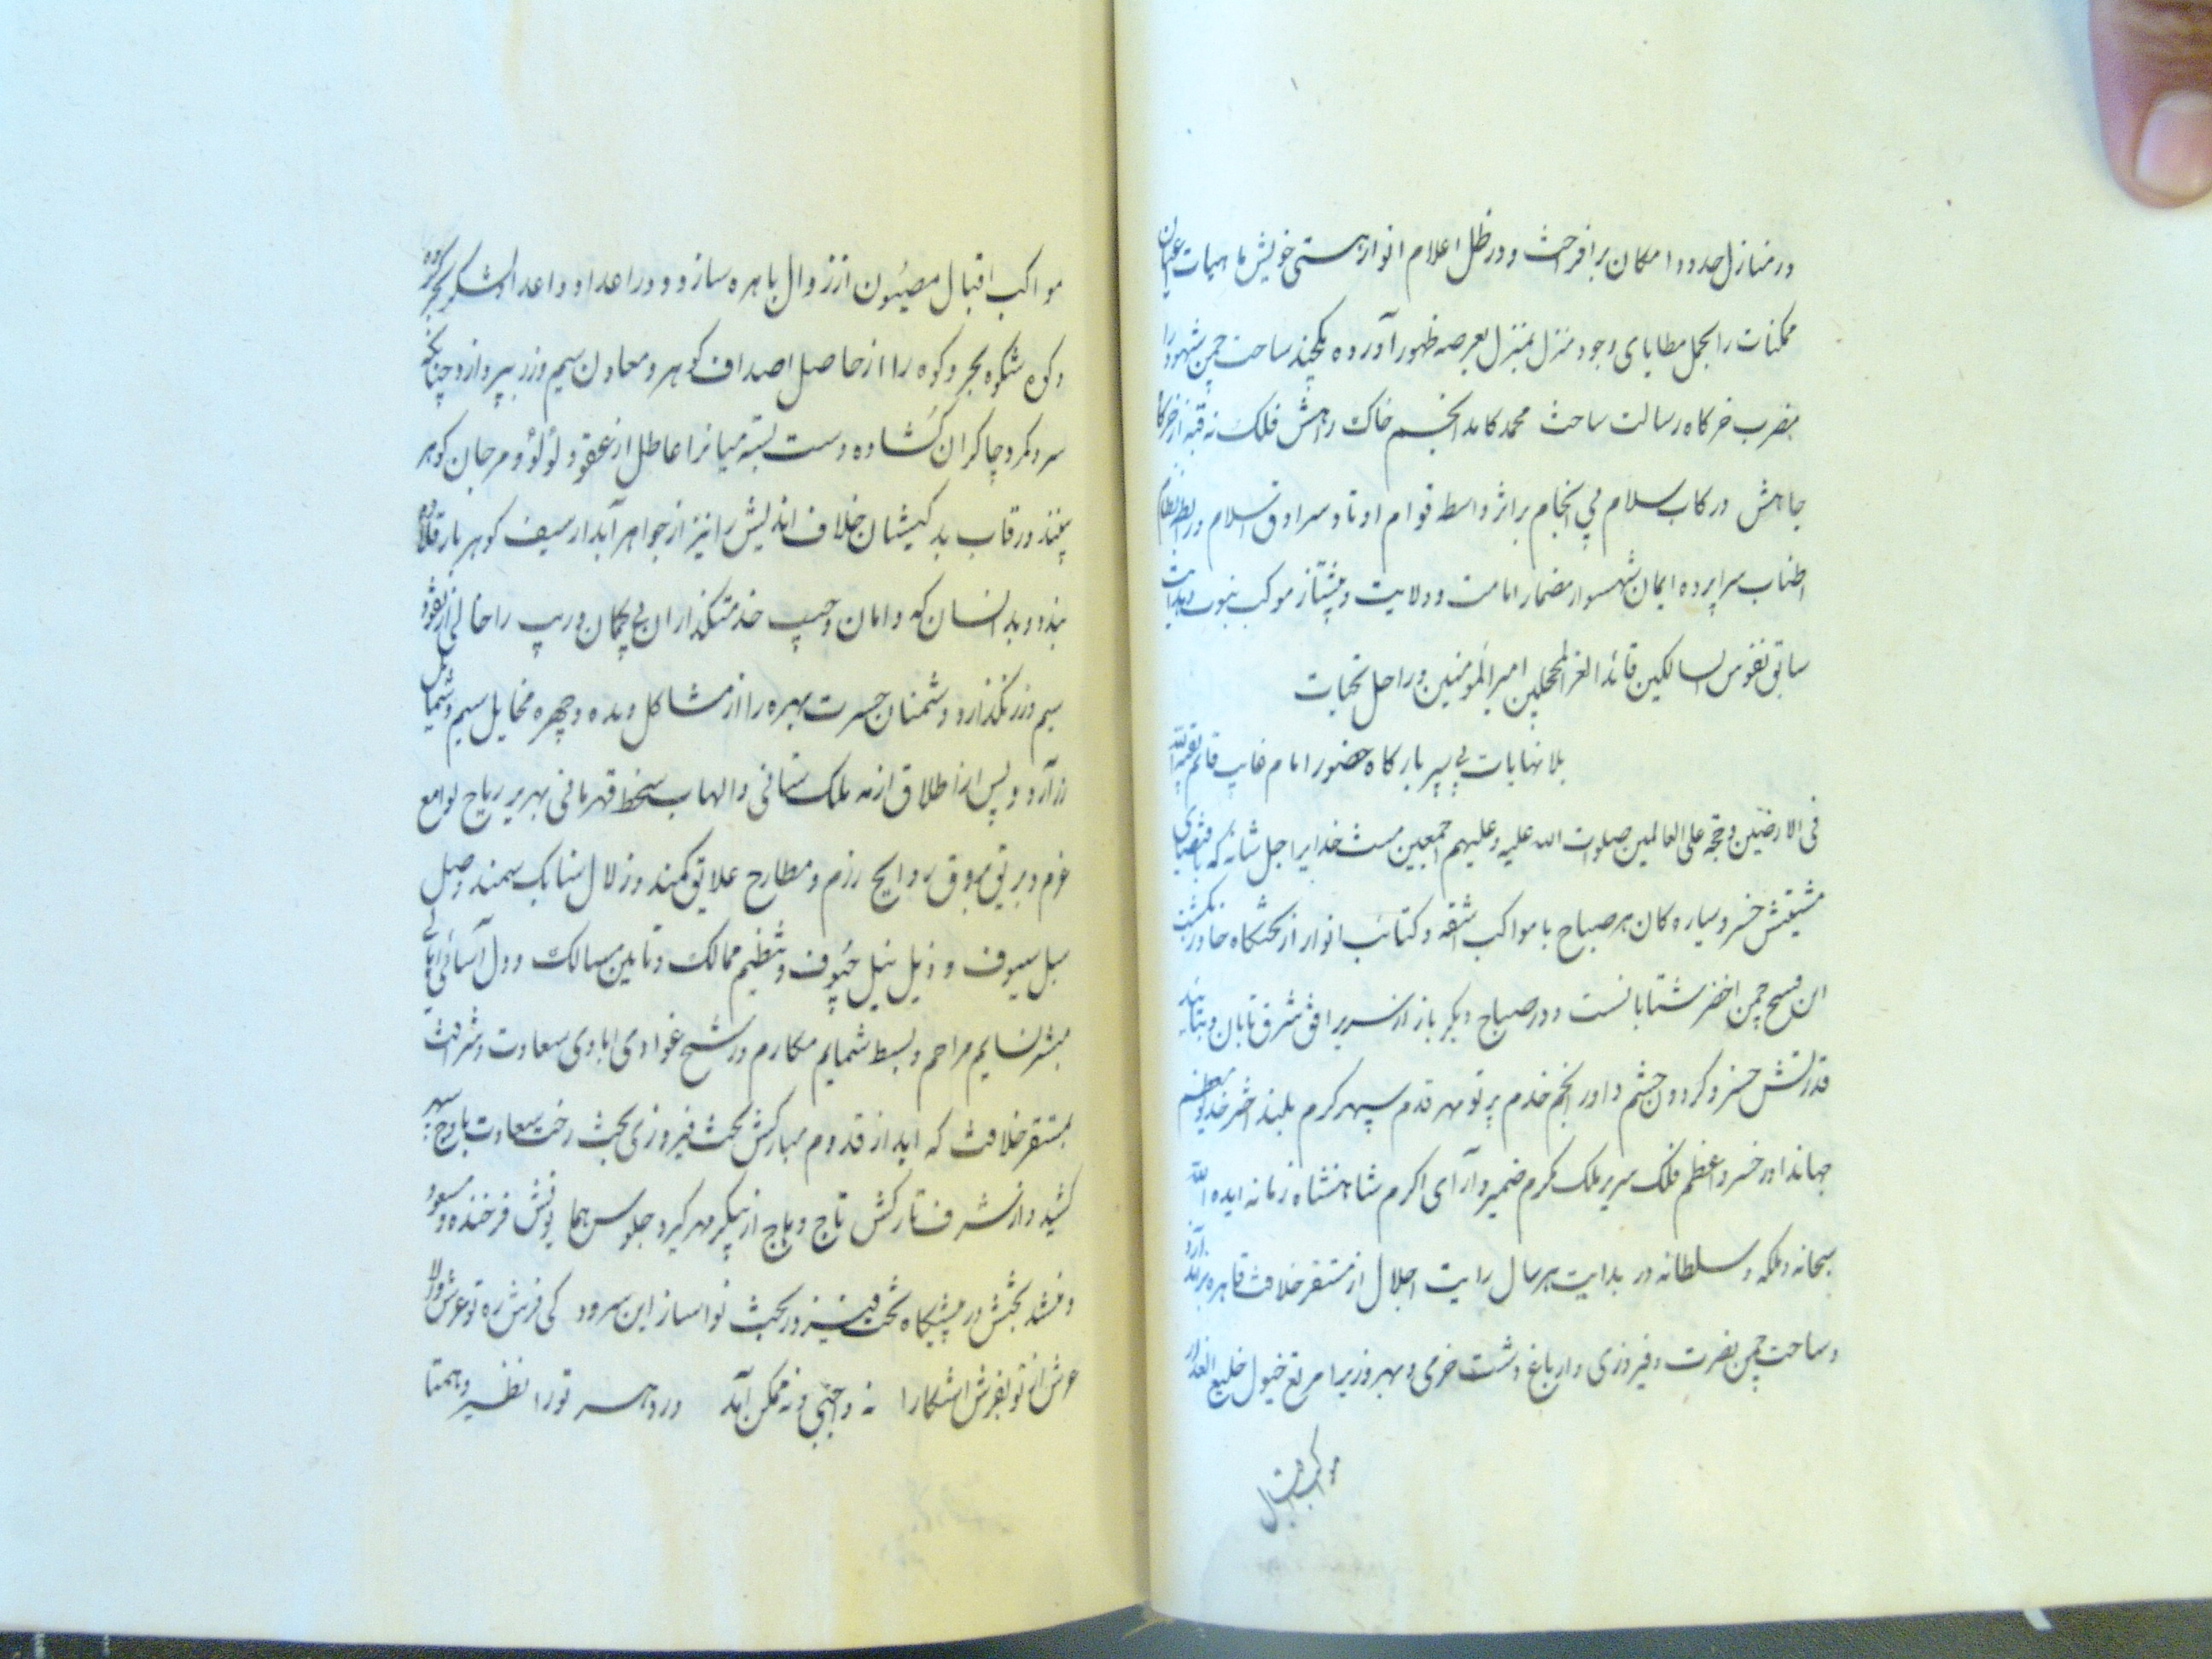 در منازل حدود امکان برافراخت و در ظل اعلام انوار هستی خویش ماهیات اعیان
ممکنات را بحمل مطایای وجود منزل بمنزل بعرصه ظهور آورده بگنجید ساحت چمن شهود را
مضرب خرکاه رسالت ساخت محمد کامد انجم خاک راهش فلک نه قبه از خرکاه
جاهش و رکاب سلام بی انجام بر اثر واسطه قوام اوتاد سرادق اسلام و رابطه نظام
اطناب سراپرده ایمان شهسوار مضمار امامت و ولایت و پیشتاز موکب نبوت و هدایت
سایق نفوس السالکین قائد الغر المحجلین امیر المؤمنین و راحل تحیات
بلا نهایات پی سپر بارکاه حضور امام غایب قائم بقیة الله
فی الارضین و حجة علی العالمین صلوات الله علیه و علیهم اجمعین مست خدایرا جل شانه که باقتضای
مشیتش خسرو سیاره کان هر صباح با مواکب اشعه و کتائب انوار از تختکاه خاور بکشت
این فسیح چمن اخضر شتابانست و در صباح دیگر باز از سریر افق شرق تابان و بتائید
قدرتش خسرو کردون حشم داور انجم خدم پرتو مهر قدم سپهر کرم بلند اختر خدیو معظم
جهاندار خسرو اعظم فلک سریر ملک کرم ضمیر وآرای اکرم شاهنشاه زمانه ایده الله
سبحانه و ملکه و سلطانه در بدایت هر سال رایت اجلال از مستقر خلافت قاهره برآرد
و ساحت چمن نصرت و فیروزی و ارباغ دشت خرمی و بهروزیرا مرتع خیول خلیع العذار
مواکب اقبال
مواکب اقبال مصیون از زوال باهره سازد و در اعداد و اعداء لشکر بحر
و کوه شکوه بحر و کوه را از حاصل اصداف کوهر و معادن سیم و زر بپردازد چنانکه
سر و کمر و چاکران کشاده دست بسته میانرا عاطل از عقود لؤلؤ و مرجان کوهر
پسندد رقاب بدکیشان خلاف اندیش را نیز از جواهر آبدار سیف کوهر بار قلاده
بندد و بدانسان که دامان و جیب خدمتکذاران بی کمان و ریب را خالی از نقود
سیم و زر نکذارد دشمنان حسرت بهره را از مشاکل دیده و چهره مخایل سیم و شمایل
زر آرد و پس از اطلاق ازمه ملک ستانی و الهاب سخط قهرمانی بهریر ریاح لوامع
عزم و بریق بروق روایح رزم و مطارح علایق کمند و زلال سنابک سمند و صل
سیل سیوف و ذیل نیل حیوف و تنظیم ممالک و تأمین مسالک و دل آسائی اهالی
بنشر نسایم مراحم و بسط شمایم مکارم و رشح غوادی ایادی سعادت و شرافت
بمستقر خلافت که اید از قدوم مبارکش تخت فیروزی بخت رخت سعادت باوج سپهر
کشید و از شرف تارکش تاج وهاج از پیکر مهر کیرد جلوس همایونش فرخنده و مسعود
و منشد بختش در پیشکاه تخت فیروز بخت نواساز این سرود کی فرش ره تو عرش والا
عرش از تو بفرش آشکارا نه واجبی و نه ممکن آمد در دهر تو را نظیر و همتا